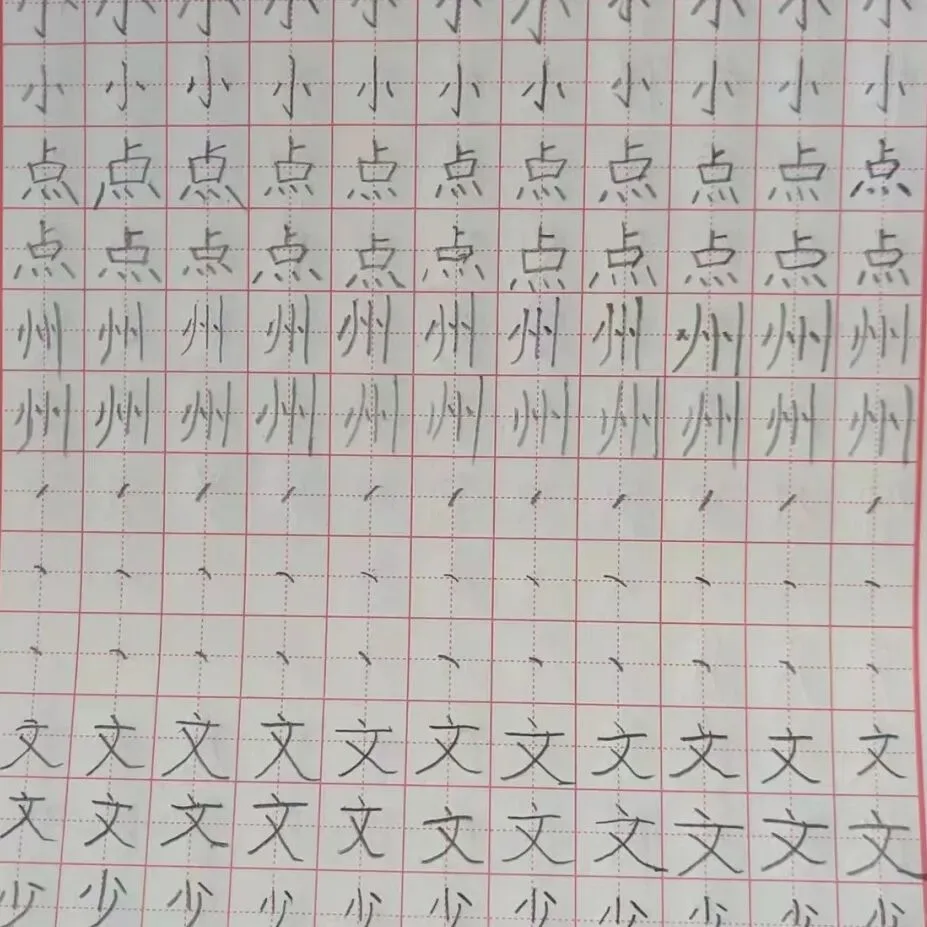 小小小小小小小小小小小
小小小小小小小小小小小
点点点点点点点点点点点
点点点点点点点点点点点
州州州州州州州州州州州
州州州州州州州州州州州
文文文文文文文文文文文
文文文文文文文文文文文
少少少少少少少少少少少